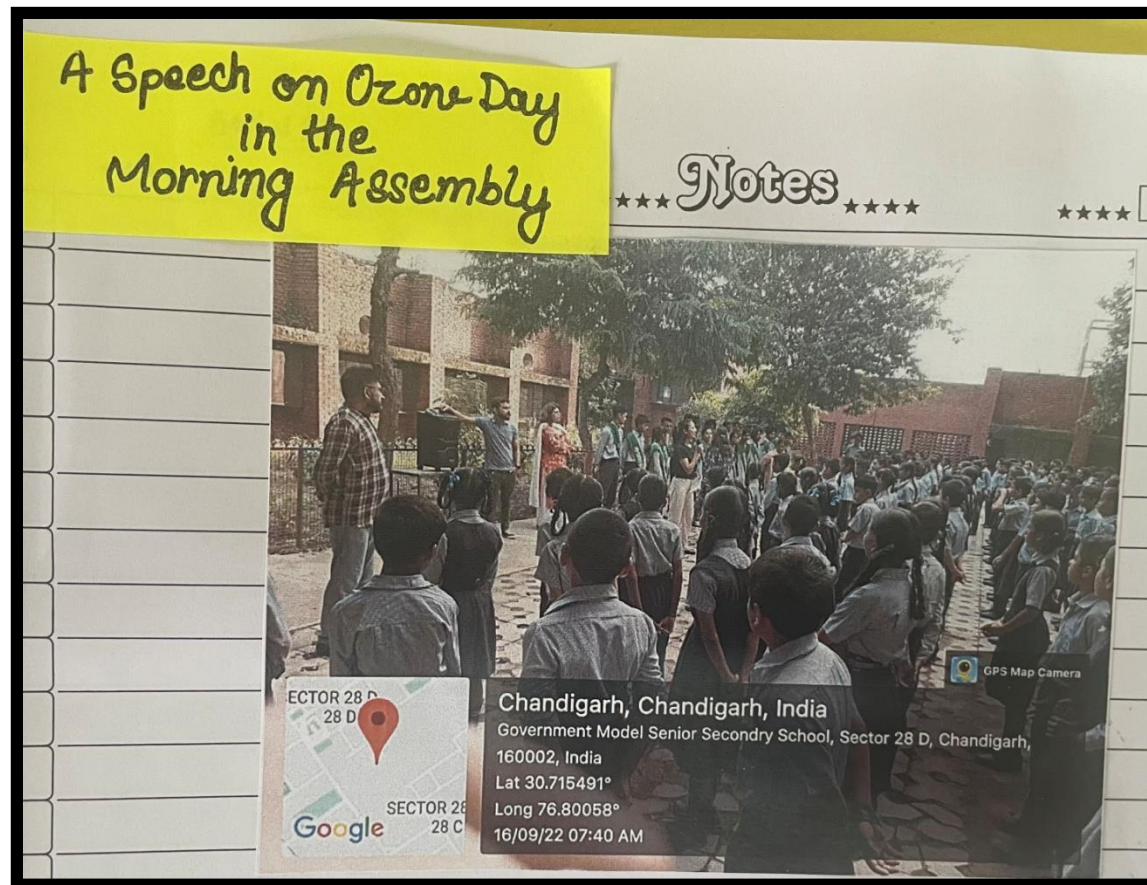 A Speech on Ozone Day
in the
Morning Assembly
Notes
GPS Map Camera
ECTOR 28 D
28 D
SECTOR 28
28 C
Google
Chandigarh, Chandigarh, India
Government Model Senior Secondry School, Sector 28 D, Chandigarh,
160002, India
Lat 30.715491°
Long 76.80058°
16/09/22 07:40 AM